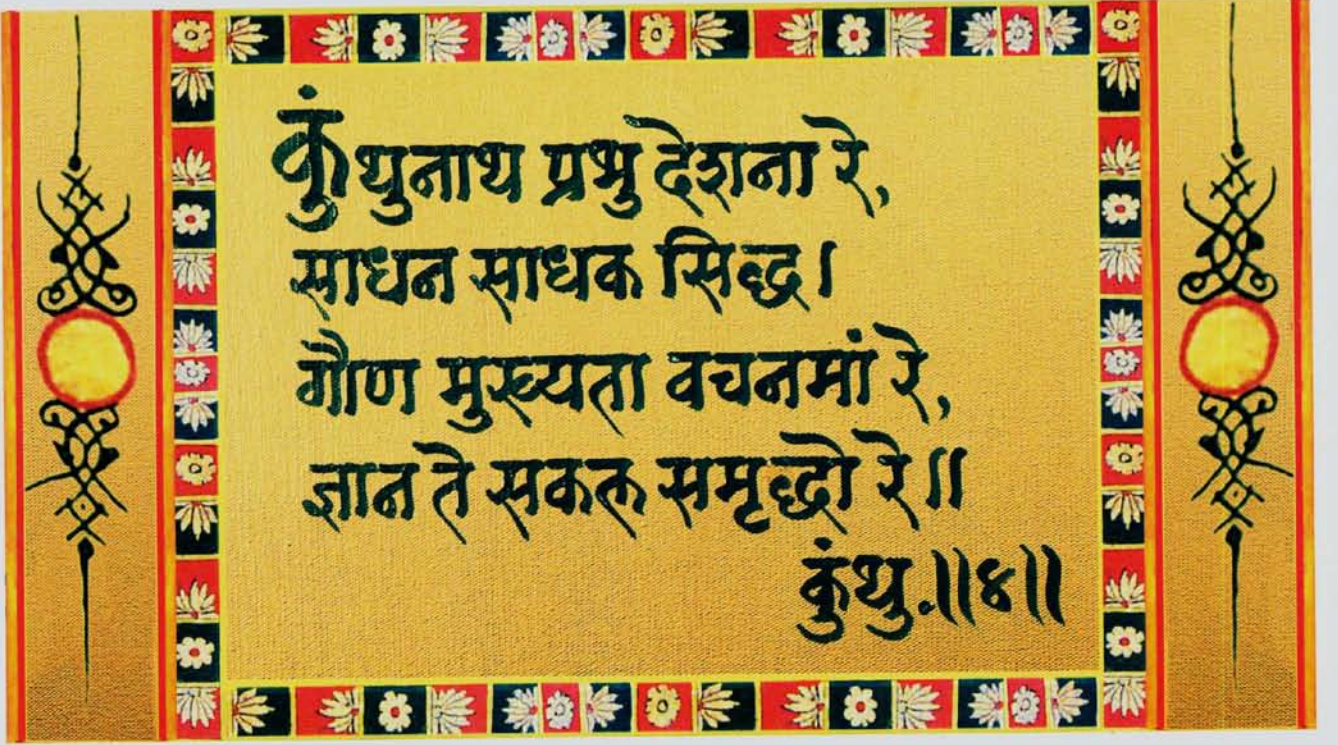 कुंथुनाथ प्रभु देशना रे,
साधन साधक सिद्ध।
गौण मुख्यता वचनमां रे,
ज्ञान ते सकल समृद्धो रे॥
कुंथु.॥४॥